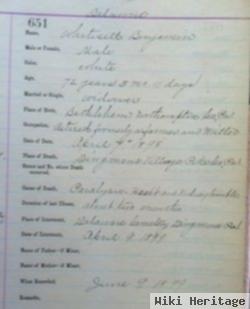 Delaware
651
Name, Whitesell Benjamin
Male or Female, Male
Color, White
Age, 72 years 3 mo. days
Married or Single, Widower
Place of Birth, Bethlehem Northampton Co. Pa.
Occupation, Retired formerly a farmer and Miller
Date of Death, April 4th 1898
Place of Death, Dingmans Village Pike Co. Pa.
Street and No. where Death
occurred,
Cause of Death, Paralysis Heart and Kidney trouble
Duration of last Illness, about two months
Place of Interment, Delaware Cemetery Dingmans Pa.
Date of Interment, April
Name of Father—if Minor,
Name of Mother—if Minor,
When Recorded, June
Remarks,
Wiki Heritage